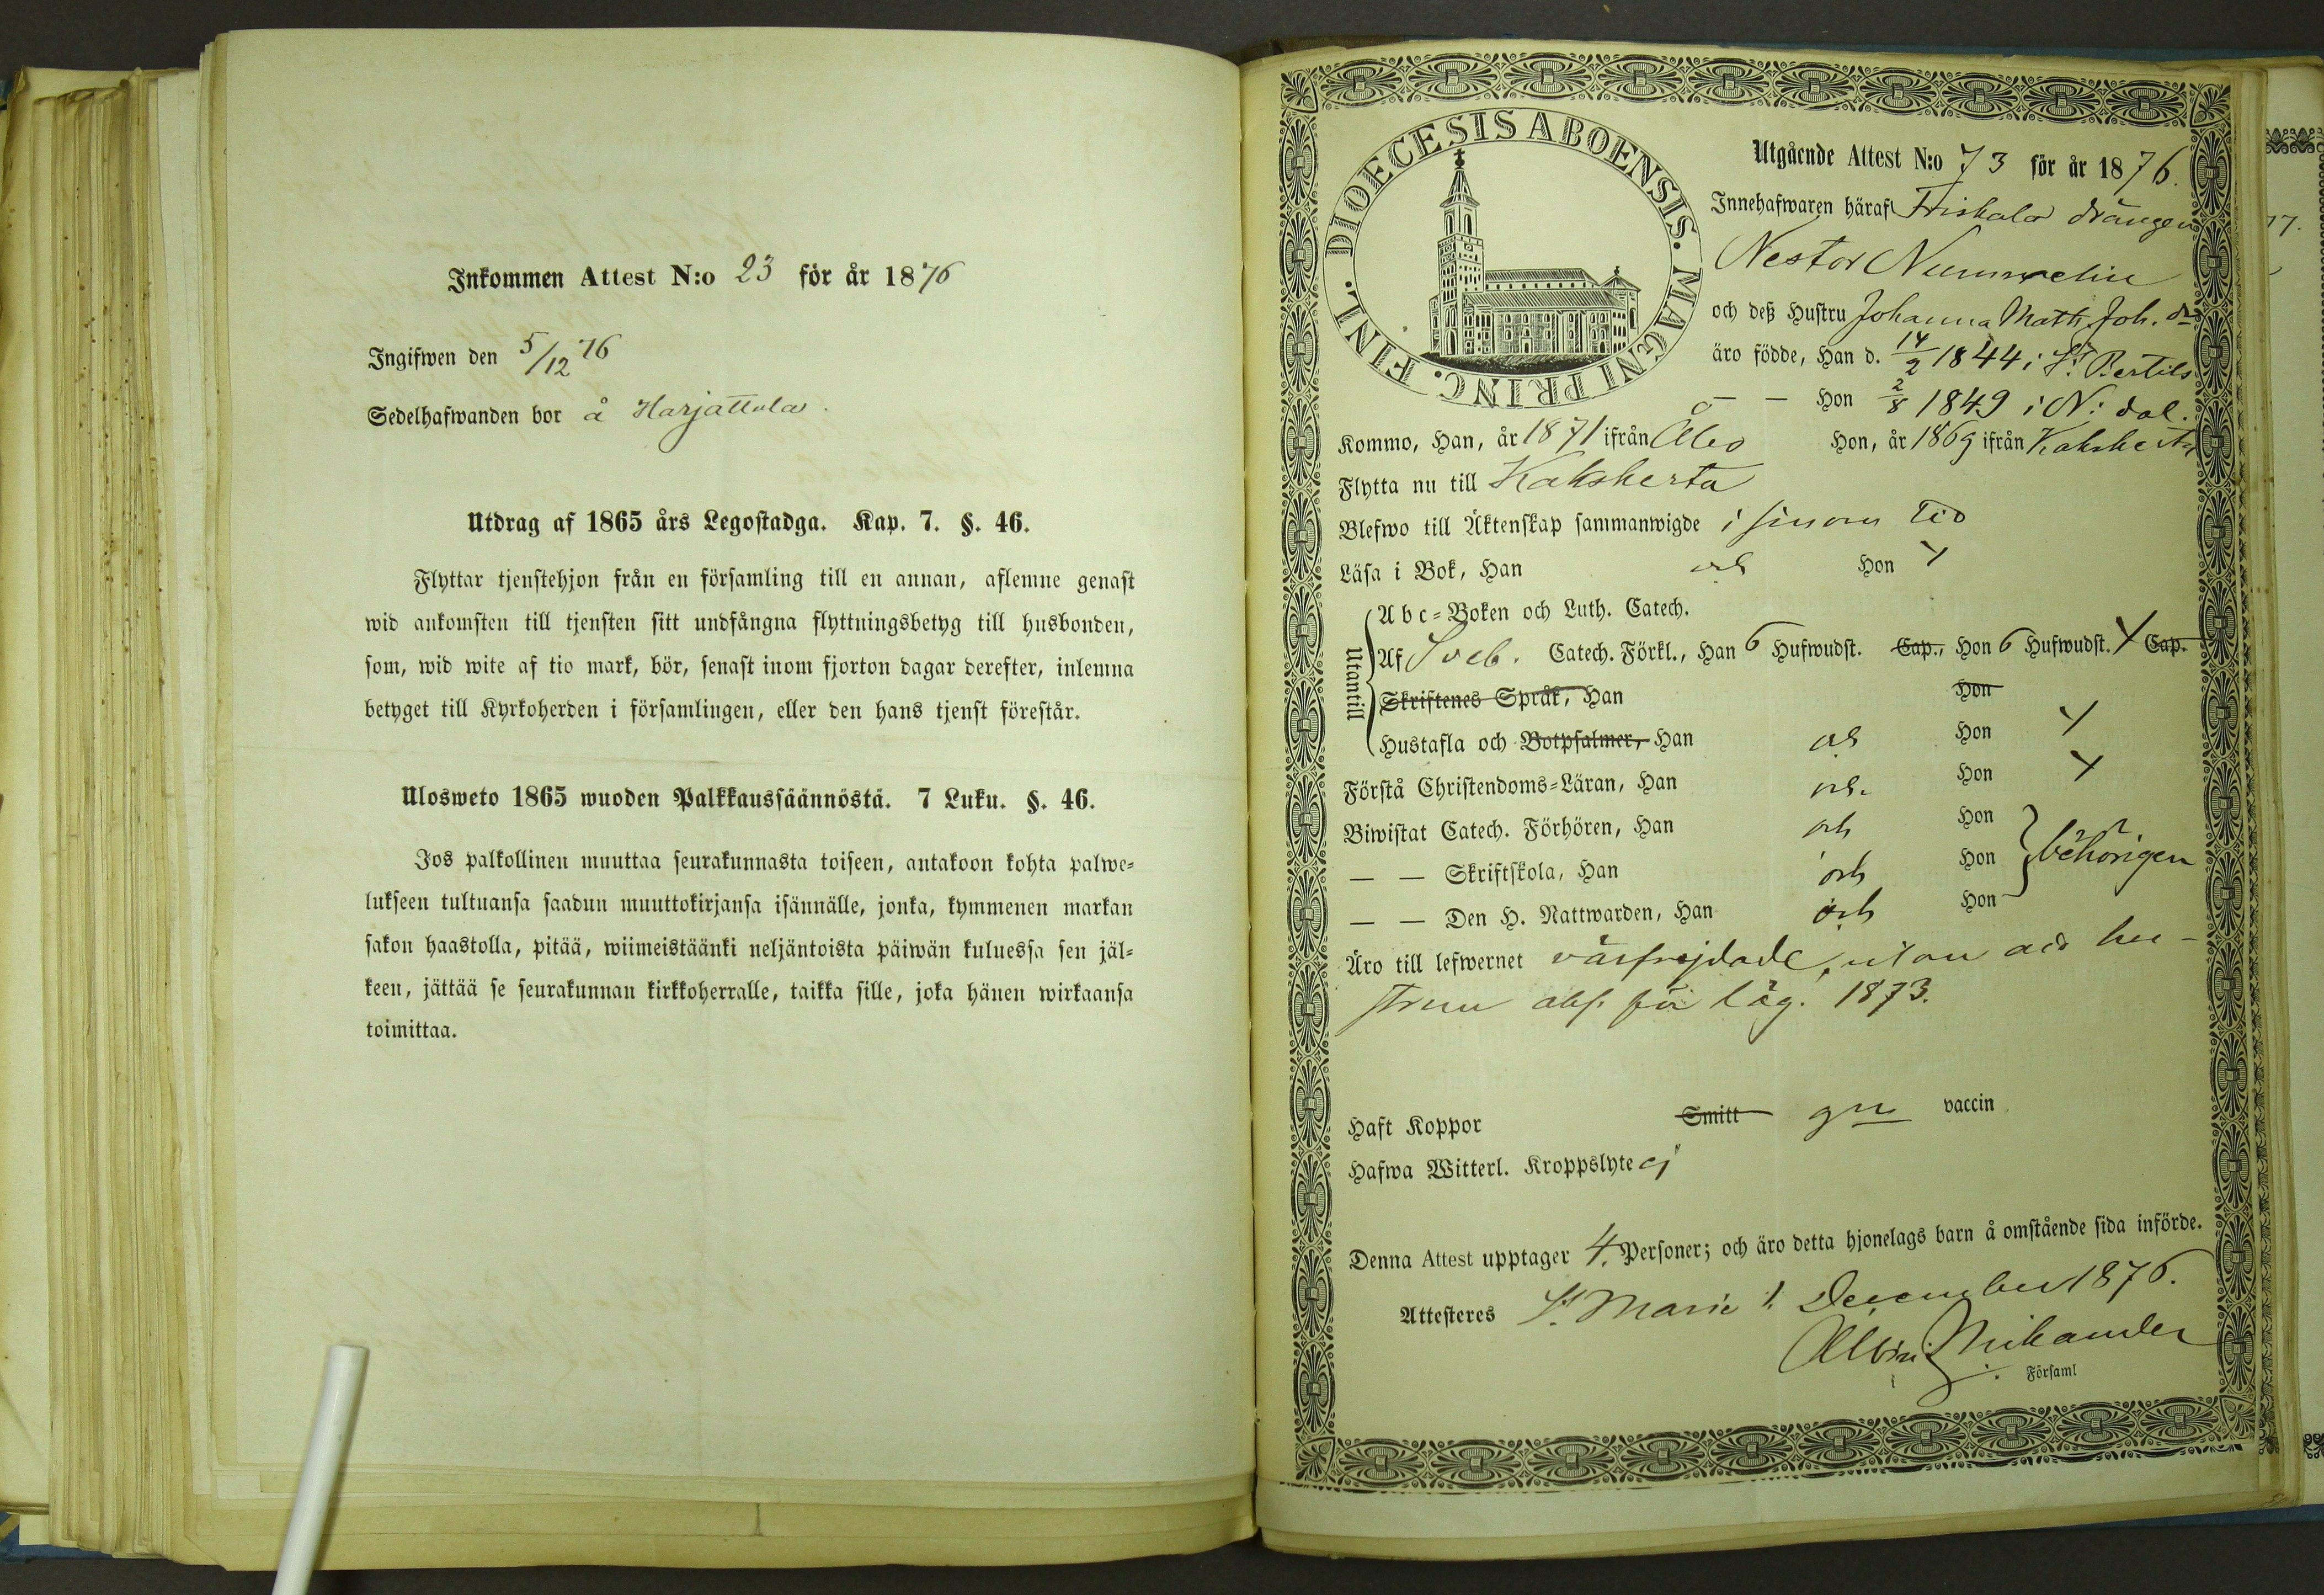 Inkommen Attest N:o 23 för år 1876
Ingifwen den 5/12 76
Sedelhafwanden bor å Harjattula.
Utdrag af 1865 års Legostadga. Kap. 7. §. 46.
Flyttar tjenstehjon från en församling till en annan, aflemne genast
wid ankomsten till tjensten sitt undfångna flyttningsbetyg till husbonden,
som, wid wite af tio mark, bör, senast inom fjorton dagar derefter, inlemna
betyget till Kyrkoherden i församlingen, eller den hans tjenst förestår.
Ulosweto 1865 wuoden Palkkaussäännöstä. 7 Luku. §. 46.
Jos palkollinen muuttaa seurakunnasta toiseen, antakoon kohta palwe=
lukseen tultuansa saadun muuttokirjansa isännälle, jonka, kymmenen markan
sakon haastolla, pitää, wiimeistäänki neljäntoista päiwän kuluessa sen jäl=
keen, jättää se seurakunnan kirkkoherralle, taikka sille, joka hänen wirkaansa
toimittaa.
DIOECESIS ABOENSIS. MAGNI PRINC. FINL.
Utgående Attest N:o 73 för år 1876.
Innehafwaren häraf Friskala drängen
Nestor Nummelin
och deß Hustru Johanna Math. Joh. dr
äro födde, Han d. 14/2 1844 i St Bertils
— — Hon 2/8 1849 i N:dal.
Kommo, Han, år 1871 ifrån Åbo Hon, år 1869 ifrån Kakskerta
Flytta nu till Kakskerta
Blefwo till Äktenskap sammanwigde i sinom tid
Läsa i Bok, Han och Hon
Utantill
Abc=Boken och Luth. Catech.
Af Sveb. Catech. Förkl., Han 6 Hufwudst. Cap., Hon 6 Hufwudst. Cap.
Skriftenes Språk, Han Hon
Hustafla och Botpsalmer, Han och Hon
Förstå Christendoms=Läran, Han och Hon
Biwistat Catech. Förhören, Han och Hon
— — Skriftskola, Han och Hon behörigen
— — Den H. Nattwarden, Han och Hon
Äro till lefwernet välfrejdade, utan att hu-
strun abs. för läg. 1873.
Haft Koppor Smitt vaccin
Hafwa Witterl. Kroppslyte ej
Denna Attest upptager 4. Personer; och äro detta hjonelags barn å omstående sida införde.
Attesteres St Marie 1. December 1876.
Albin Mikander
i Församl